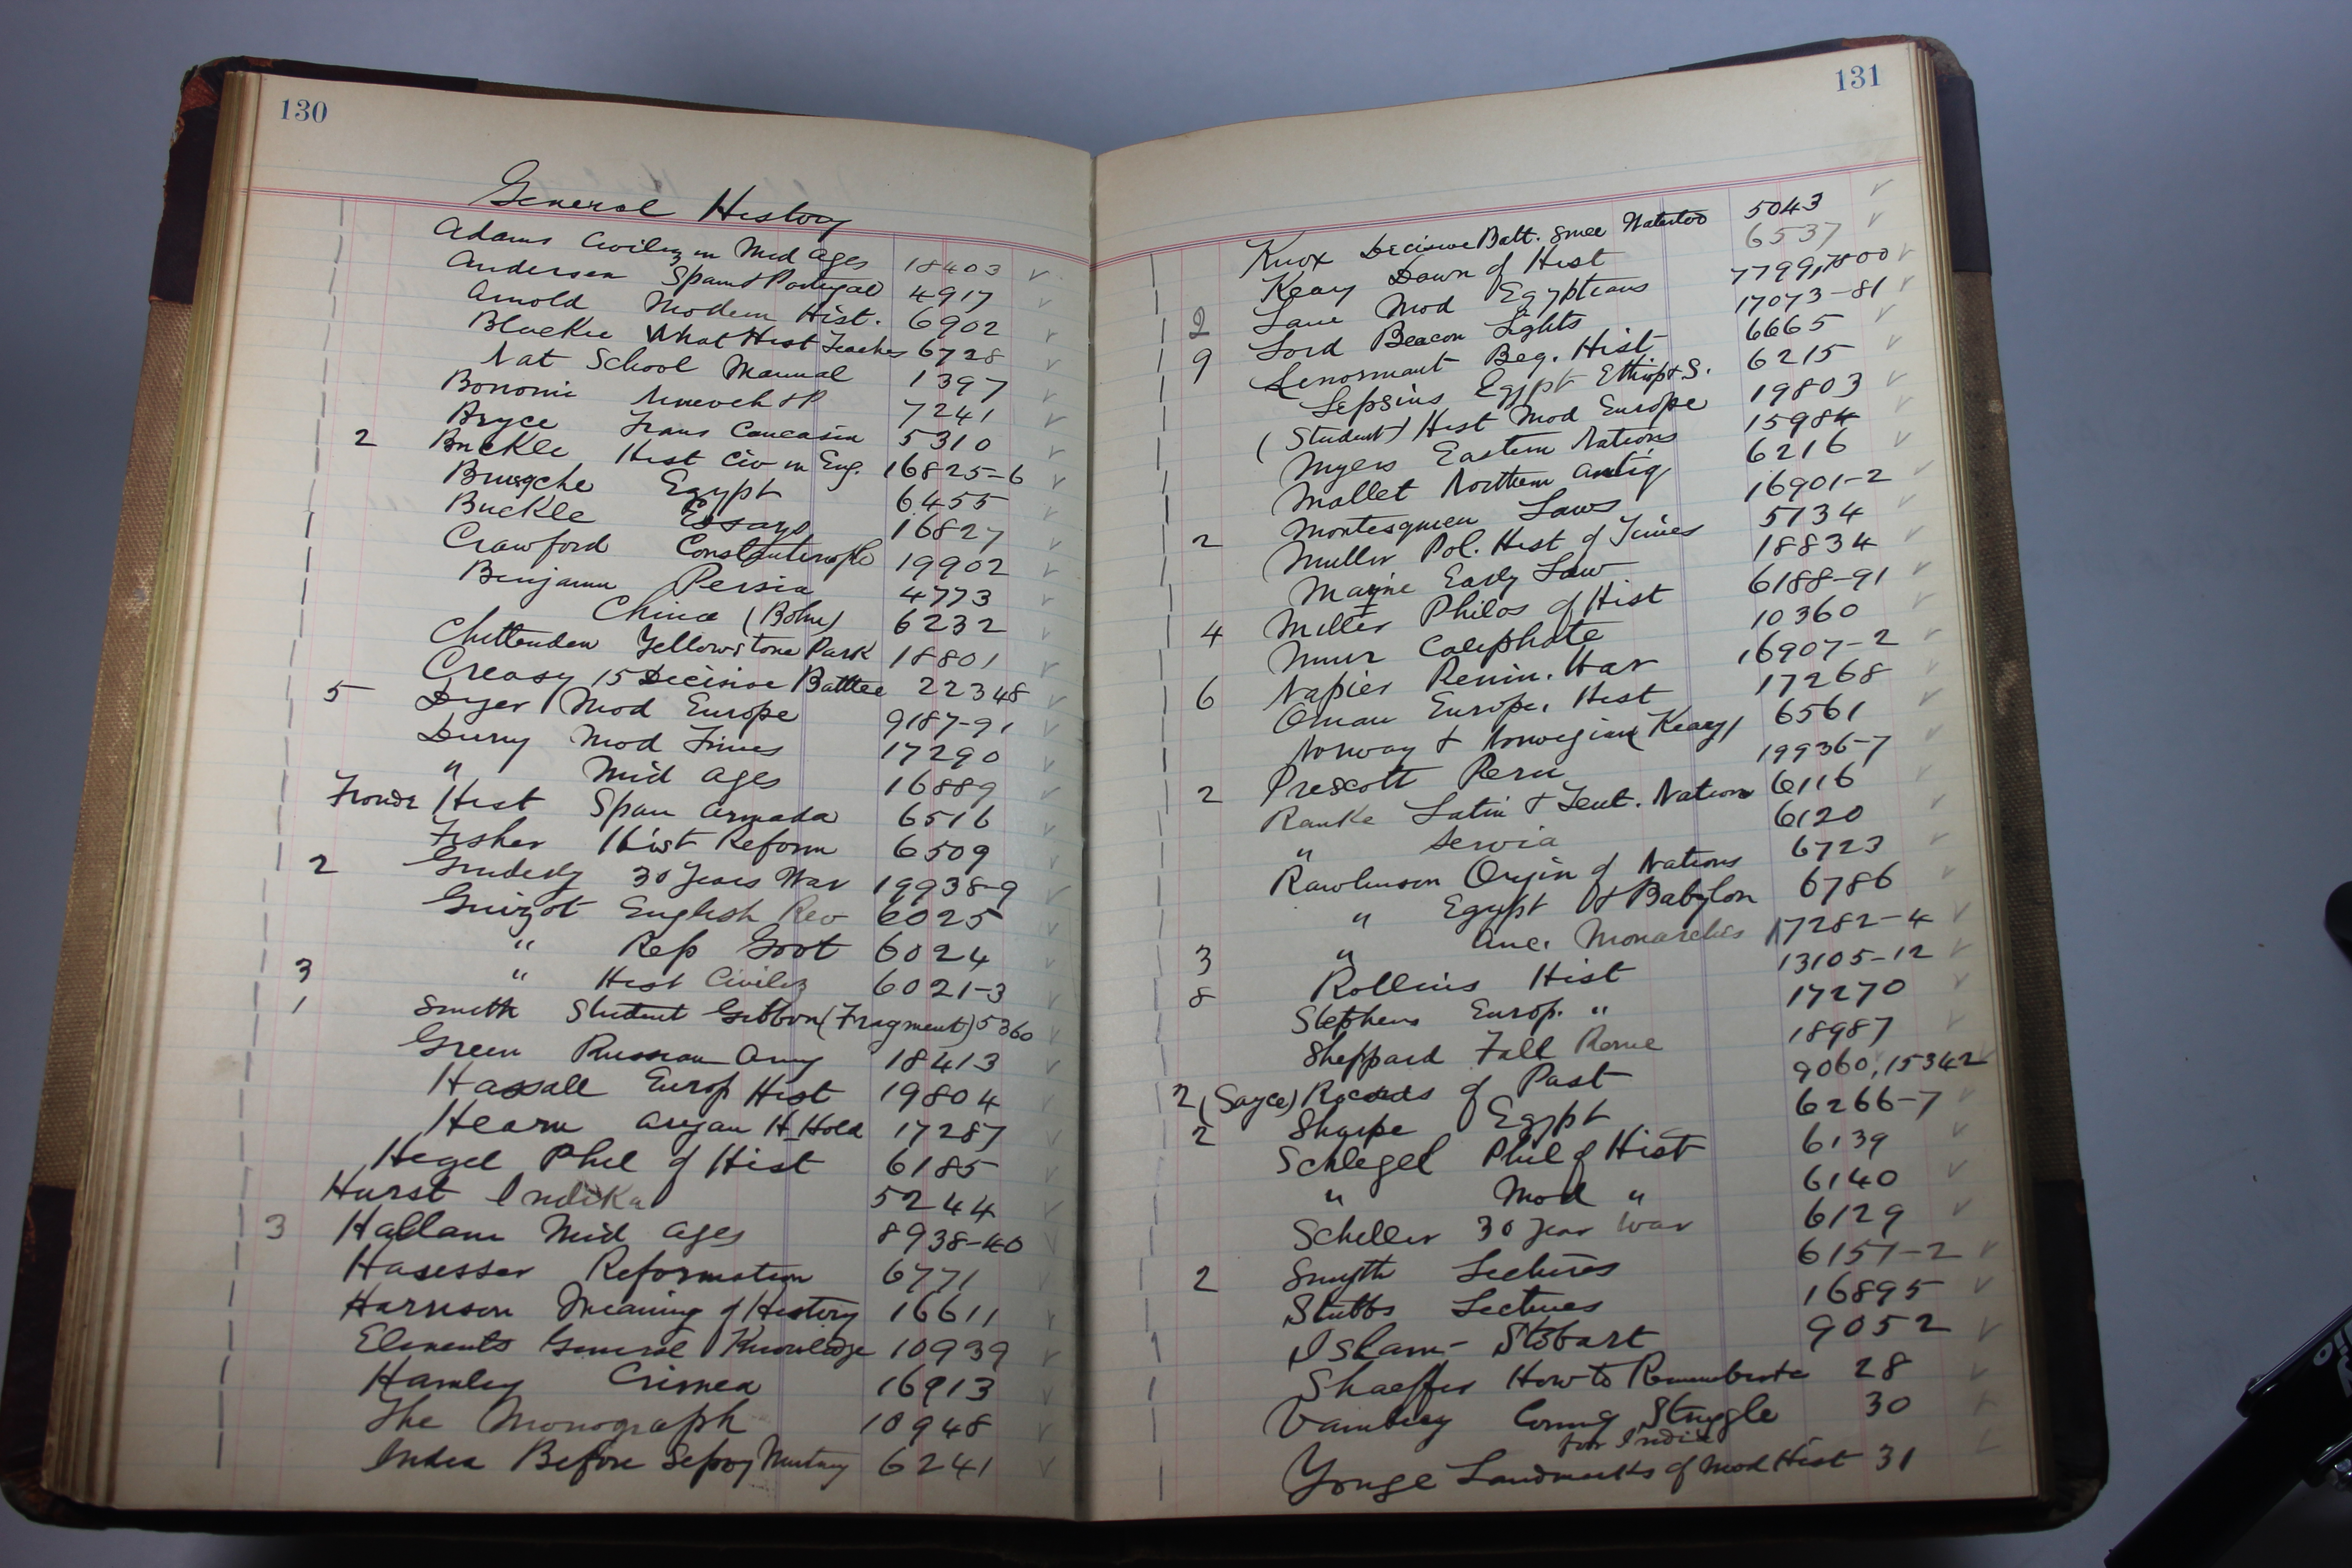 130
General History
Adams Civiliz in Mid Ages 18403 ✓
Anderson Spain & Portugal 4917 ✓
Arnold Modern Hist. 6902 ✓
Blackie What Hist Teaches 6728 ✓
Nat School Manual 1397 ✓
Bonomi Nineveh & P 7241 ✓
Bryce Trans Caucasia 5310 ✓
2 Buckle Hist Civ in Eng. 16825-6 ✓
Brugsche Egypt 6455 ✓
Buckle Essays 16827 ✓
Crawford Constantinople 19902 ✓
Benjamin Persia 4773 ✓
China (Bohn) 6232 ✓
Chittenden Yellowstone Park 18801 ✓
Creasy 15 Decisive Battles 22348 ✓
5 Dyer Mod Europe 9187-91 ✓
Duruy Mod Times 17290 ✓
" Mid Ages 16889 ✓
Froude Hist Span Armada 6516 ✓
Fisher Hist Reform 6509 ✓
2 Gindely 30 Years War 19938-9 ✓
Guizot English Rev 6025 ✓
" Rep Govt 6024 ✓
3 " Hist Civiliz 6021-3 ✓
1 Smith Student Gibbon (Fragment) 5360
Green Russian Army 18413 ✓
Hassall Europ Hist 19804 ✓
Hearn Aryan H_Hold 17287 ✓
Hegel Phil of Hist 6185 ✓
Hurst Indika 5244 ✓
3 Hallam Mid Ages 8938-40 ✓
Hausser Reformation 6771 ✓
Harrison Meaning of History 16611 ✓
Elements General Knowledge 10939 ✓
Hamley Crimea 16913 ✓
The Monograph 10948 ✓
India Before Sepoy Mutiny 6241 ✓
131
Knox Decisive Batt. since Waterloo 5043 ✓
Keary Dawn of Hist 6537 ✓
2 Lane Mod Egyptians 7799,7800 ✓
9 Lord Beacon Lights 17073-81 ✓
Lenormant Beg. Hist 6665 ✓
Lepsius Egypt Ethiop & S. 6215 ✓
(Student) Hist Mod Europe 19803 ✓
Myers Eastern Nations 15984
Mallet Northern Antiq 6216 ✓
2 Montesquieu Laws 16901-2 ✓
Muller Pol. Hist of Times 5134 ✓
Maine Early Law 18834 ✓
4 Miller Philos of Hist 6188-91 ✓
Muir Caliphate 10360 ✓
6 Napier Penin. War 16907-2 ✓
Oman Europe. Hist 17268 ✓
Norway & Norwegians (Keary) 6561 ✓
2 Prescott Peru 19936-7 ✓
Ranke Latin & Teut. Nation 6116 ✓
" Servia 6120 ✓
Rawlinson Origin of Nations 6723 ✓
" Egypt & Babylon 6786 ✓
3 " Anc. Monarchies 17282-4 ✓
8 Rollins Hist 13105-12 ✓
Stephens Europ. " 17270 ✓
Sheppard Fall Rome 18987 ✓
2 (Sayce) Records of Past 9060, 15342 ✓
2 Sharpe Egypt 6266-7 ✓
Schlegel Phil of Hist 6139 ✓
" Mod " 6140 ✓
Schiller 30 Year War 6129 ✓
2 Smyth Lectures 6151-2 ✓
Stubbs Lectures 16895 ✓
Islam - Stobart 9052 ✓
Shaeffer How to Remember 28 ✓
Vambery Coming Struggle 30 ✓
for India
Yonge Landmarks of Mod Hist 31 ✓